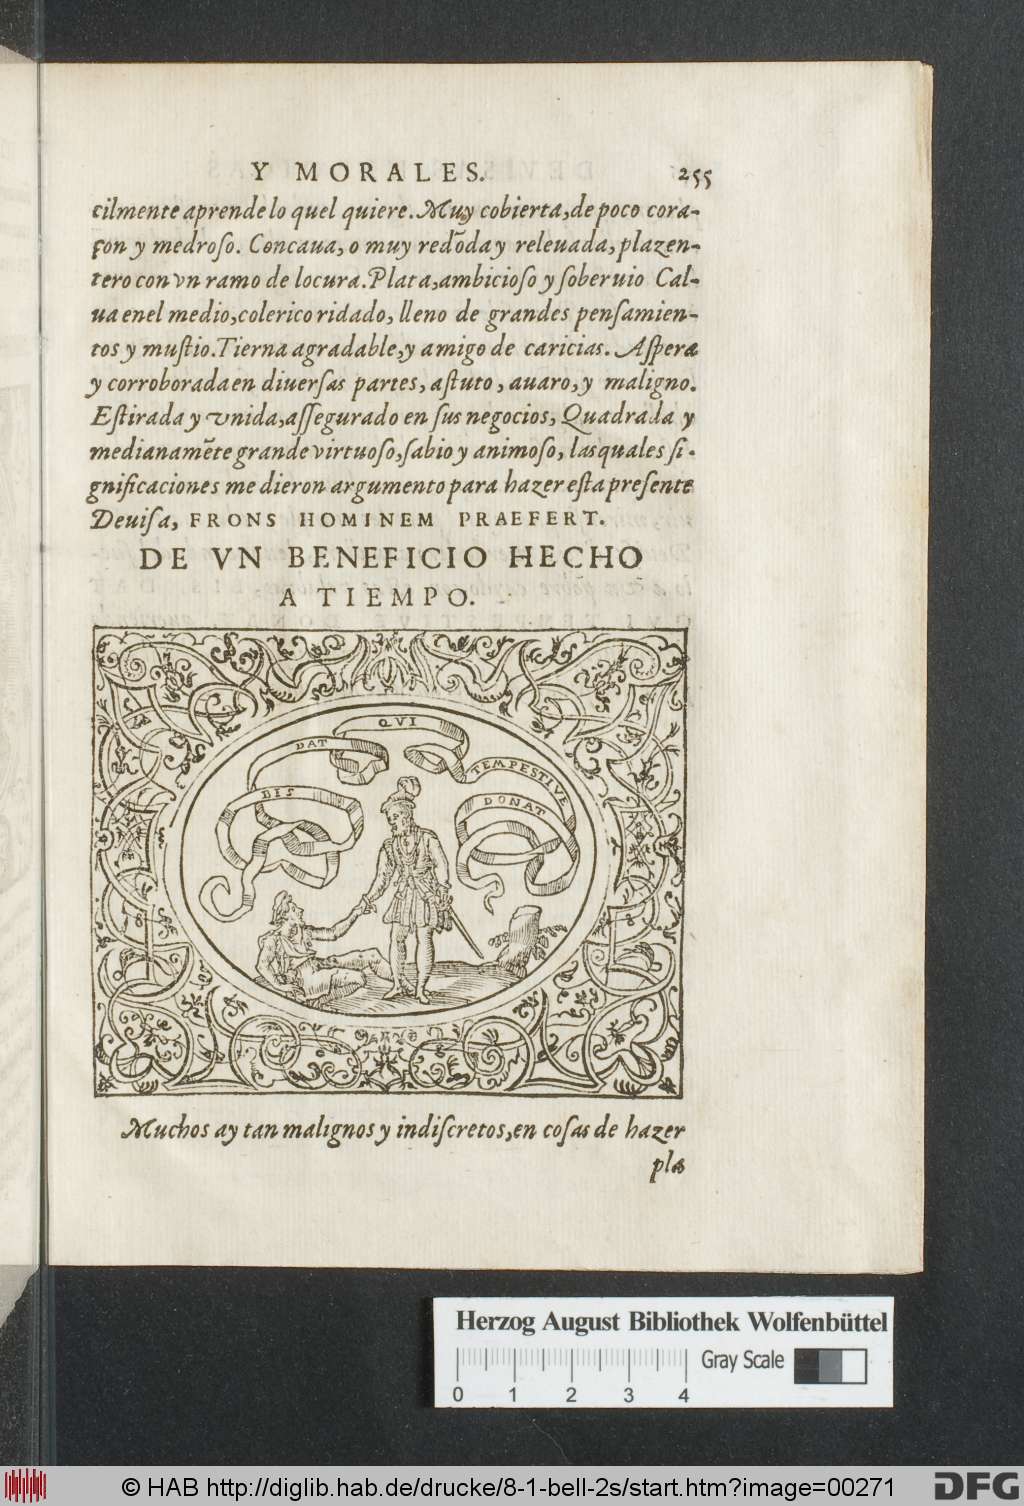 Y MORALES. 255
cilmente aprende lo quel quiere. Muy cobierta, de poco cora-
çon y medroso. Concaua, o muy redōda y releuada, plazen-
tero con vn ramo de locura. Plata, ambicioso y soberuio Cal-
ua enel medio, colerico ridado, lleno de grandes pensamien-
tos y mustio. Tierna agradable, y amigo de caricias. Aspera
y corroborada en diuersas partes, astuto, auaro, y maligno.
Estirada y vnida, assegurado en sus negocios, Quadrada y
medianamēte grande virtuoso, sabio y animoso, las quales si-
gnificaciones me dieron argumento para hazer esta presente
Deuisa, FRONS HOMINEM PRAEFERT.
DE VN BENEFICIO HECHO
A TIEMPO.
BIS
DAT
QVI
TEMPESTIVE
DONAT
Muchos ay tan malignos y indiscretos, en cosas de hazer
pla
Herzog August Bibliothek Wolfenbüttel
Gray Scale
0 1 2 3 4
© HAB http://diglib.hab.de/drucke/8-1-bell-2s/start.htm?image=00271
DFG